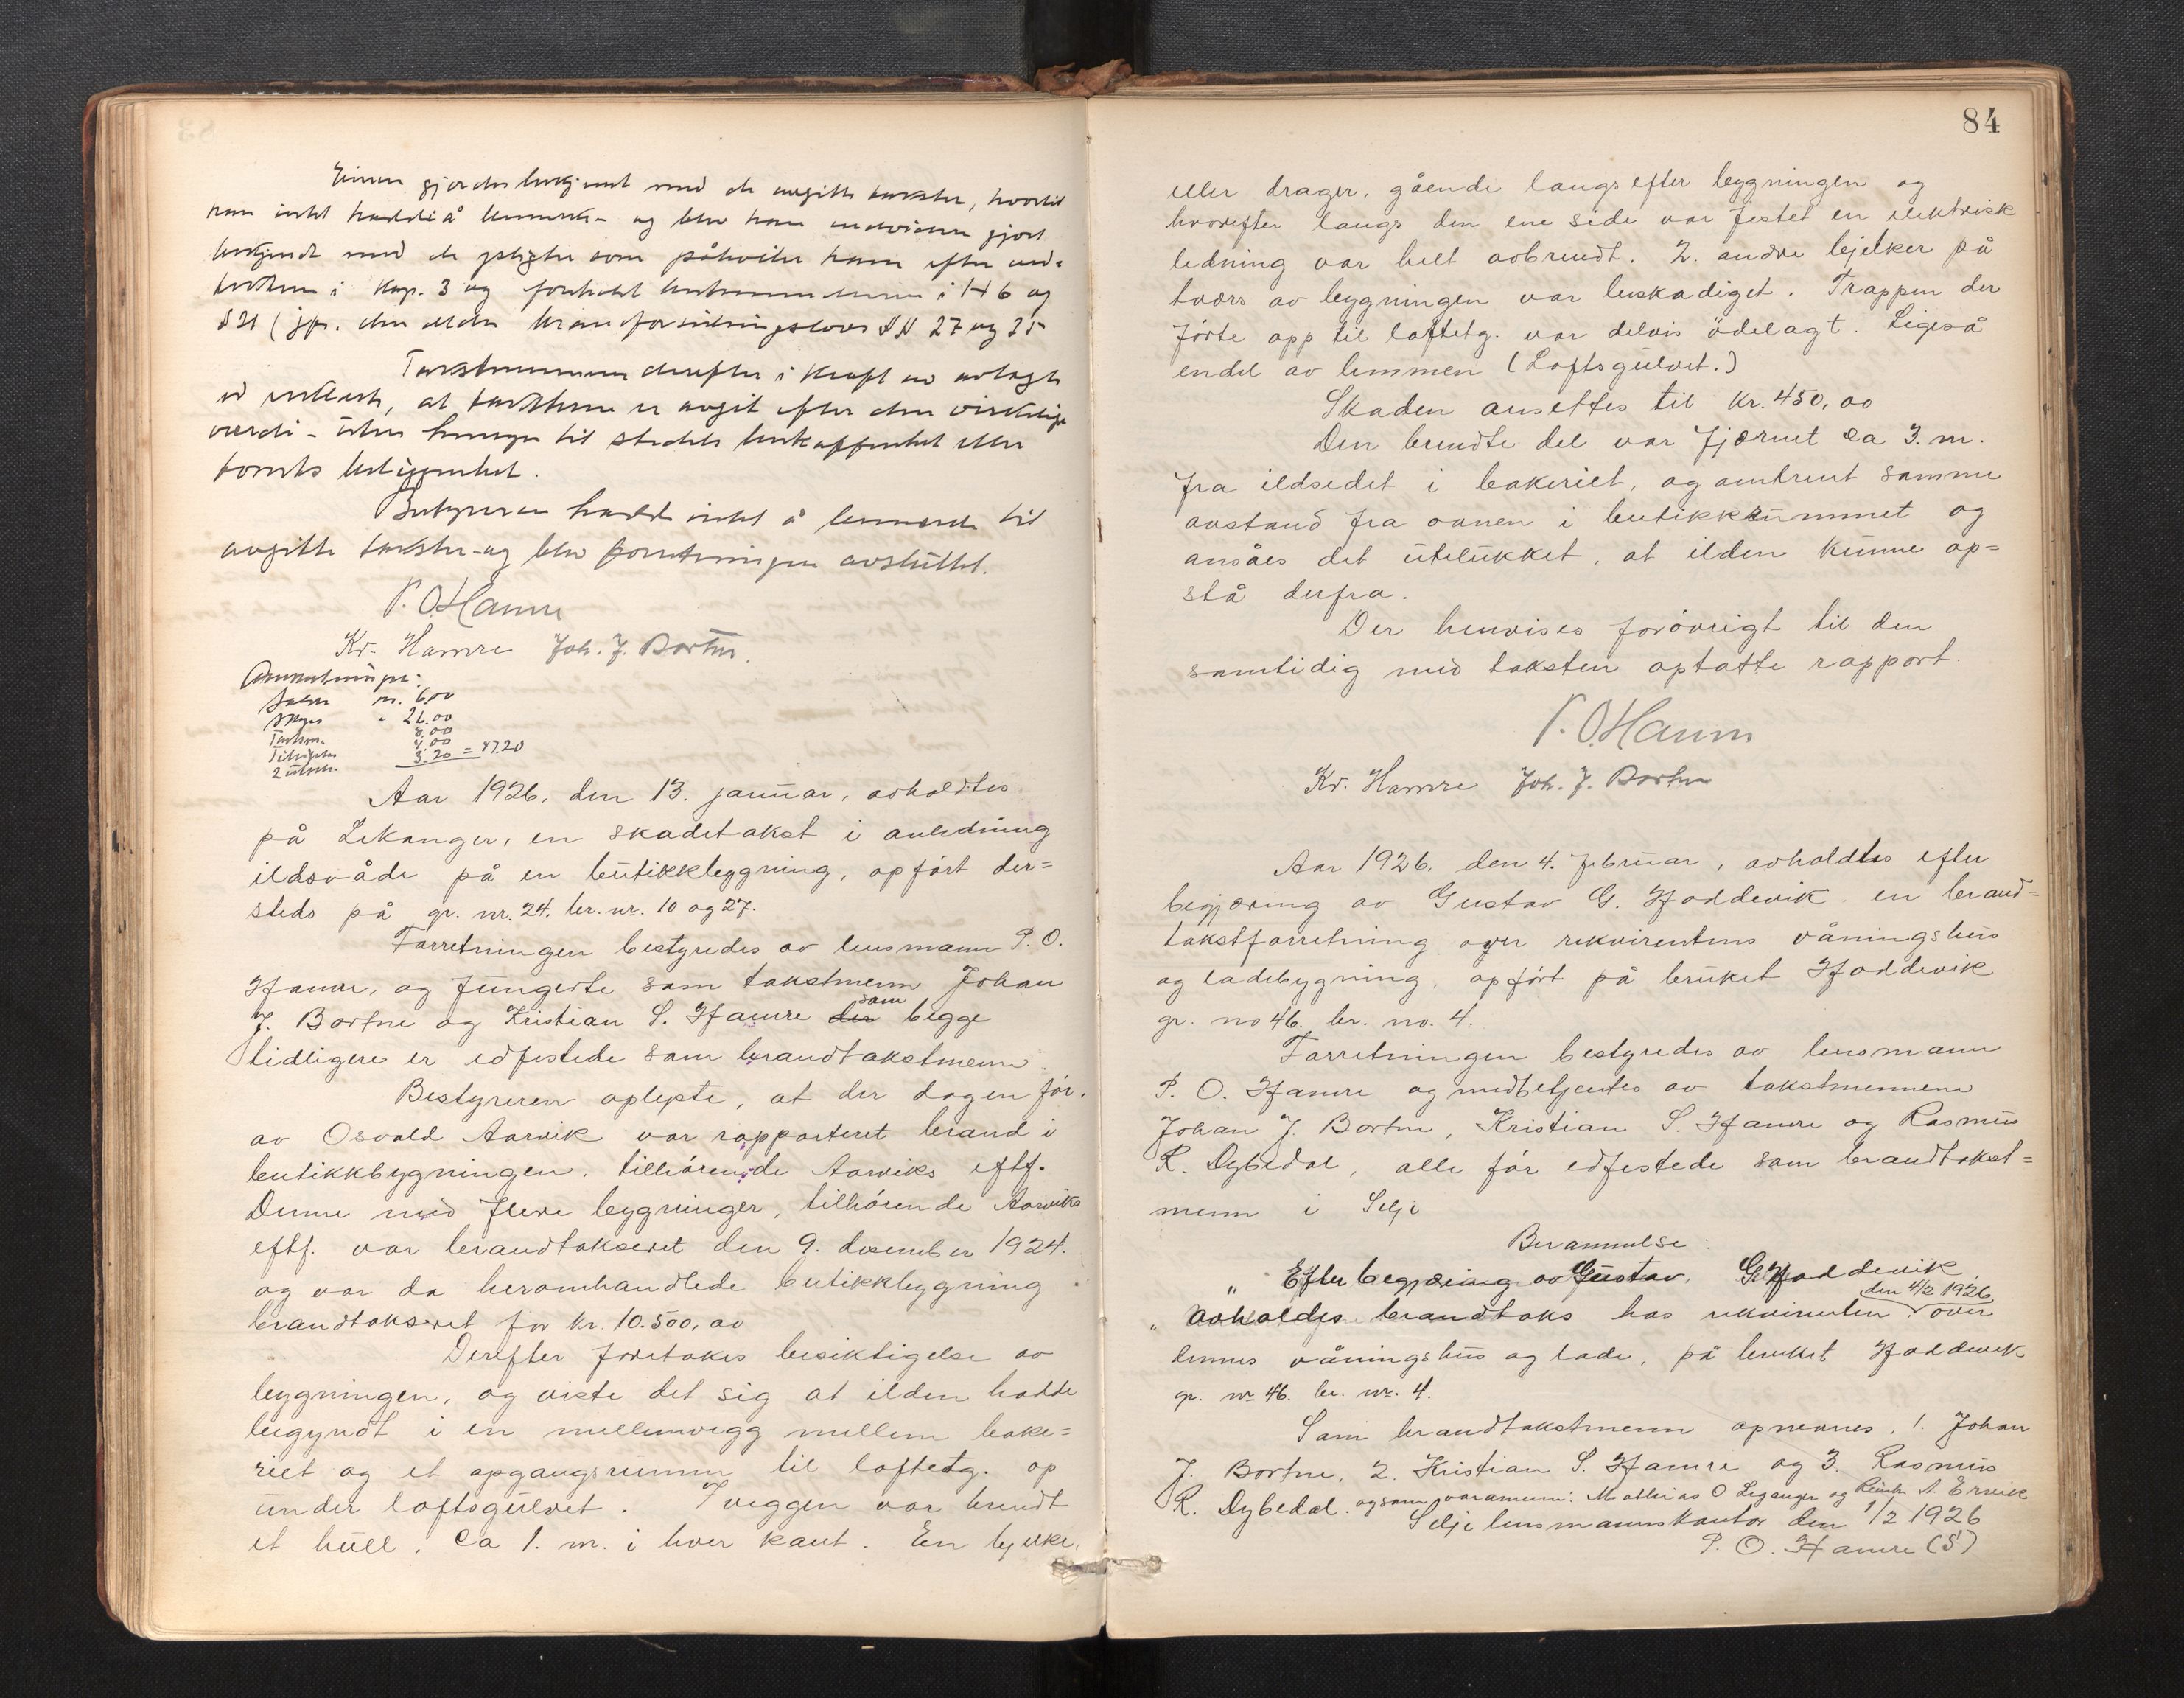 Eieren gjordes bekjent med de avgitte takster, hvortil
han intet hadde å bemerke - og blev han endvidere gjort
bekjendt med de pligter som påhviler ham efter ved-
tektene i Kap. 3 og forholdt bestemmelserne i § 16 og
§ 21 (jfr. den eldre brandforsikringslovs §§ 27 og 25
Takstmennene derefter i kraft av avlagt
ed erklærte, at takstene er avgit efter den virkelige
værdi - uten hensyn til stedets beskaffenhet eller
tomts beliggenhet.
Bestyreren hadde intet å bemerke til
avgitte takster - og blev forretningen avsluttet.
P. O. Hamre
Kr. Hamre Joh. J. Bortne.
Omkostninger:
Salær kr. 6.00
Skyss " 26.00
Takstm. 8.00
4.00
2 utskr. 3.20 = 47.20
Aar 1926, den 13. januar, avholdtes
på Leikanger, en skadetakst i anledning
ildsvåde på en butikkbygning, opført der=
steds på gr. nr. 24. br. nr. 10 og 27.
Forretningen bestyredes av lensmann P. O.
Hamre, og fungerte som takstmenn Johan
J. Bortne og Kristian S. Hamre der som begge
tidligere er edfestede som brandtakstmenn.
Bestyreren oplyste, at der dagen før,
av Osvald Aarvik var rapporteret brand i
butikkbygningen, tilhørende Aarviks eftf.
Denne med flere bygninger, tilhørende Aarviks
eftf. var brandtakseret den 9. desember 1924.
og var da heromhandlede butikkbygning
brandtakseret for kr. 10.500,00
Derefter foretokes besiktigelse av
bygningen, og viste det sig at ilden hadde
begyndt i en mellemvegg mellem bake=
riet og et opgangsrumm til loftetg. op
under loftsgulvet. I veggen var brendt
et hull, ca 1. m. i hver kant. En bjelke,
84
eller drager, gående langs efter bygningen og
hvorefter langs den ene side var festet en elektrisk
ledning var helt avbrendt. 2. andre bjelker på
tværs av bygningen var beskadiget. Trappen der
førte opp til loftetg. var delvis ødelagt. Ligeså
endel av lemmen (Loftsgulvet.)
Skaden ansettes til kr. 450,00
Den brendte del var fjærnet ca 3. m.
fra ildstedet i bakeriet, og omtrent samme
avstand fra ovnen i butikkrummet og
ansåes det utelukket, at ilden kunne op=
stå derfra.
Der henvises forøvrigt til den
samtidig med taksten optatte rapport.
P. O. Hamre
Kr. Hamre Joh. J. Bortne
Aar 1926, den 4. februar, avholdtes efter
begjæring av Gustav G. Hoddevik en brand=
takstforretning over rekvirentens våningshus
og ladebygning, opført på bruket Hoddevik
gr. no 46. br. no. 4.
Forretningen bestyredes av lensmann
P. O. Hamre og medbetjentes av takstmennene
Johan J. Bortne, Kristian S. Hamre og Rasmus
R. Dybedal, alle før edfestede som brandtakst=
menn i Selje
Berammelse:
" Efter begjæring av Gustav. G. Hoddevik
" avholdes brandtakst hos rekvirenten den 4/2 1926 over
dennes våningshus og lade, på bruket Hoddevik
gr. nr 46. br. nr. 4.
Som brandtakstmenn opnevnes, 1. Johan
J. Bortne, 2. Kristian S. Hamre og 3. Rasmus
R. Dybedal. og som varamenn: Mathias O Leganger og A. Ervik
Selje lensmannskontor den 1/2 1926
P. O. Hamre (S)